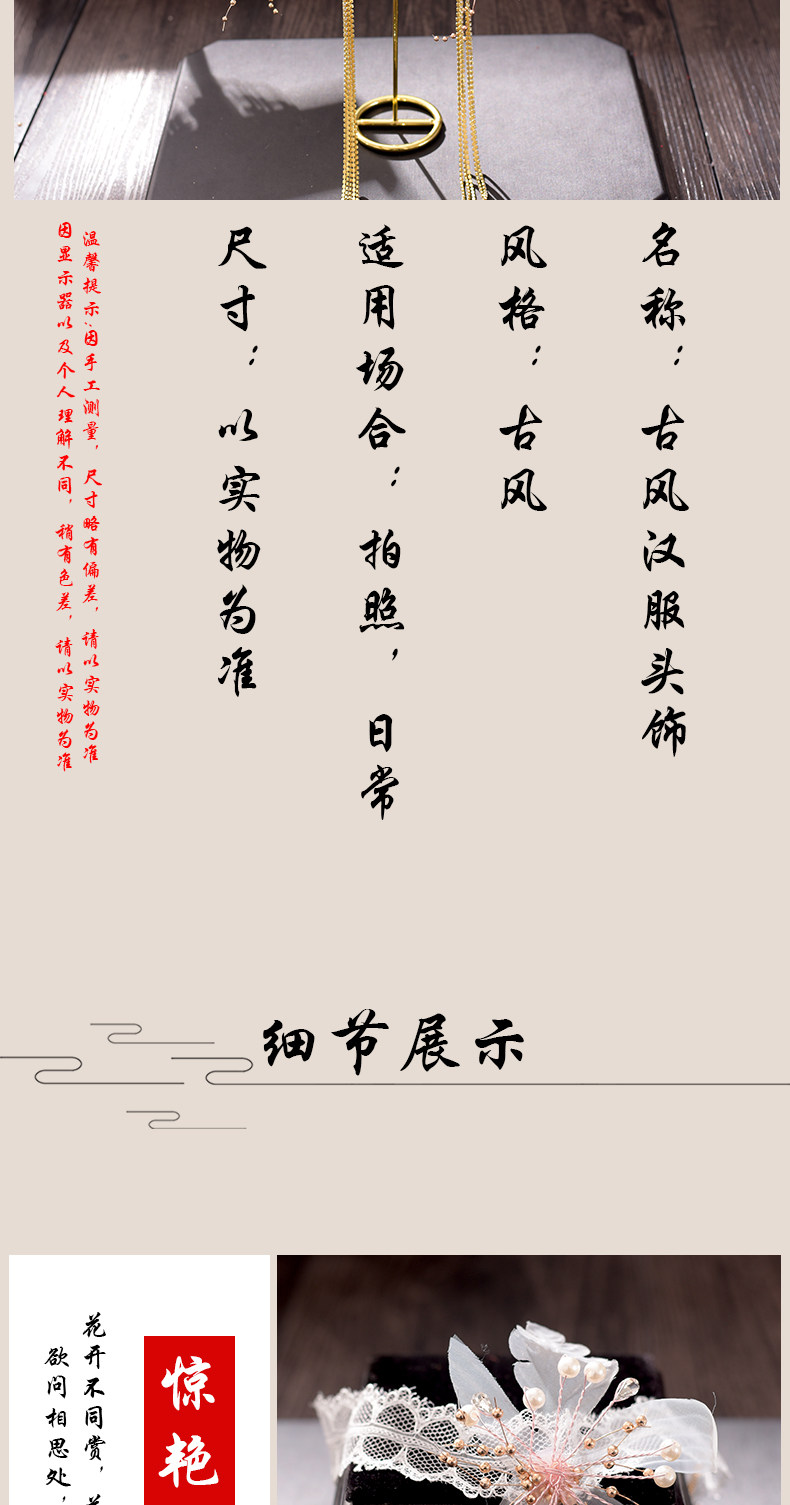 名称：古风汉服头饰
风格：古风
适用场合：拍照，日常
尺寸：以实物为准
温馨提示:因手工测量，尺寸略有偏差，请以实物为准
因显示器以及个人理解不同，稍有色差，请以实物为准
细节展示
惊艳
花开不同赏，
欲问相思处，